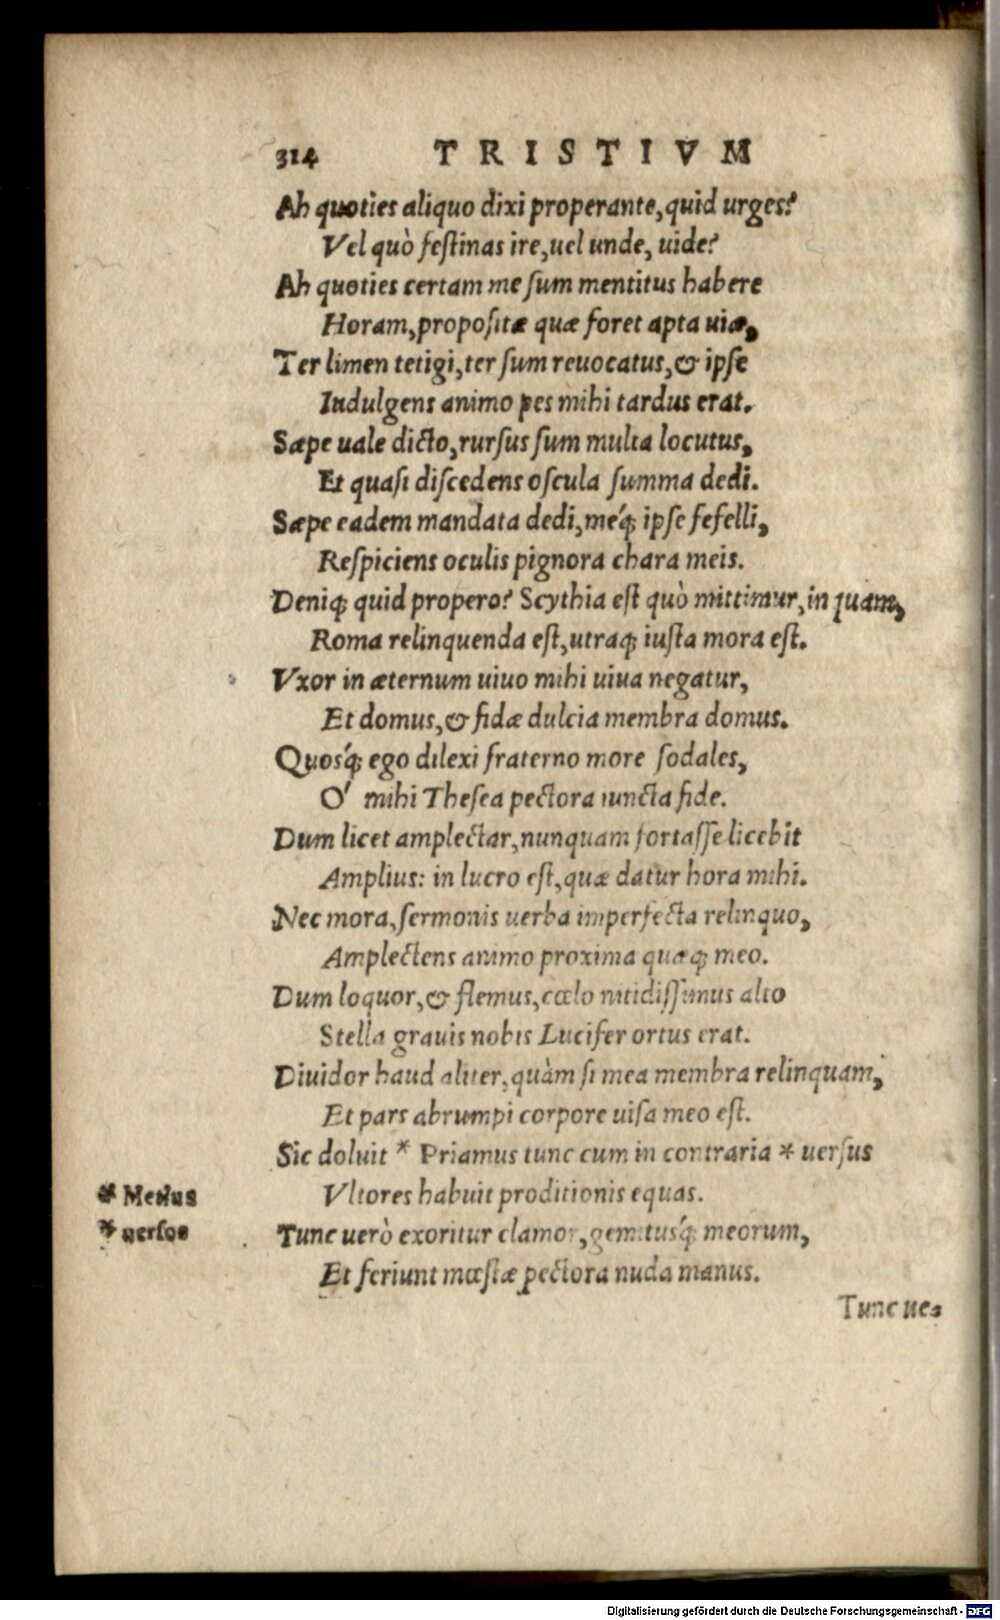 314 TRISTIVM
Ah quoties aliquo dixi properante, quid urges?
Vel quò festinas ire, uel unde, uide?
Ah quoties certam me sum mentitus habere
Horam, propositæ quæ foret apta uiæ,
Ter limen tetigi, ter sum reuocatus, & ipse
Indulgens animo pes mihi tardus erat.
Sæpe uale dicto, rursus sum multa locutus,
Et quasi discedens oscula summa dedi.
Sæpe eadem mandata dedi, méq; ipse fefelli,
Respiciens oculis pignora chara meis.
Deniq; quid propero? Scythia est quò mittimur, in quam,
Roma relinquenda est, utraq; iusta mora est.
Vxor in æternum uiuo mihi uiua negatur,
Et domus, & fidæ dulcia membra domus.
Quosq́; ego dilexi fraterno more sodales,
O' mihi Thesea pectora iuncta fide.
Dum licet amplectar, nunquam fortasse licebit
Amplius: in lucro est, quæ datur hora mihi.
Nec mora, sermonis uerba imperfecta relinquo,
Amplectens animo proxima quæq; meo.
Dum loquor, & flemus, cœlo nitidissimus alto
Stella grauis nobis Lucifer ortus erat.
Diuidor haud aliter, quàm si mea membra relinquam,
Et pars abrumpi corpore uisa meo est.
Sic doluit * Priamus tunc cum in contraria * uersus
* Metius Vltores habuit proditionis equas.
* uersos Tunc uerò exoritur clamor, gemitusq́; meorum,
Et feriunt mœstæ pectora nuda manus.
Tunc ue-
Digitalisierung gefördert durch die Deutsche Forschungsgemeinschaft - DFG